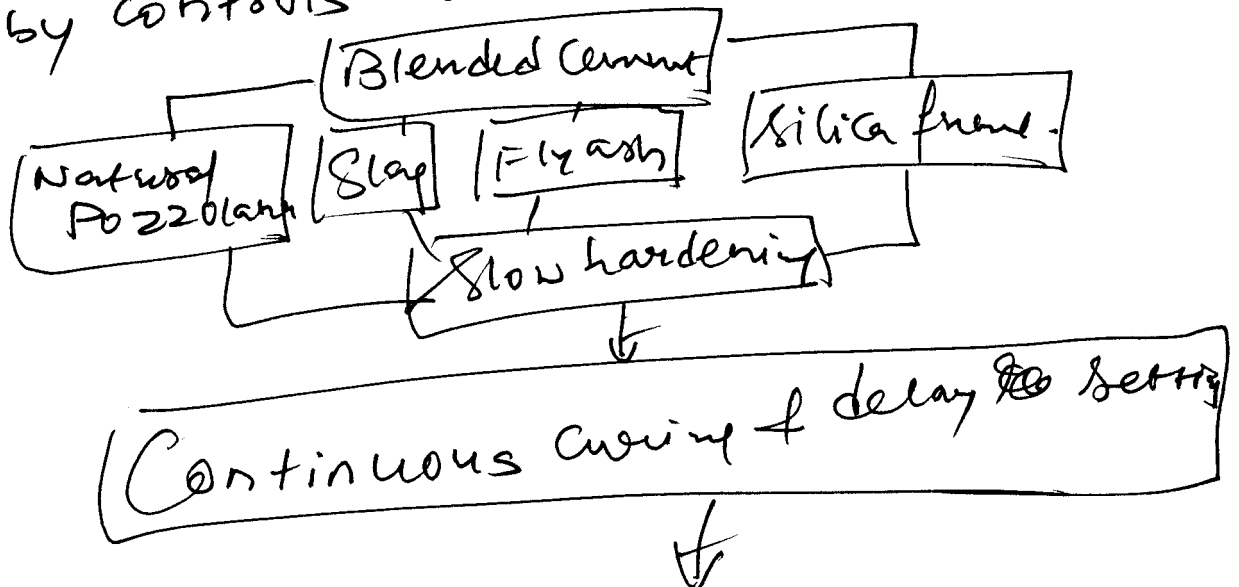 by controls
Blended Cement
Natural
Pozzolana
Slag
Fly ash
Silica fume.
Slow hardening
Continuous curing & delay to setting